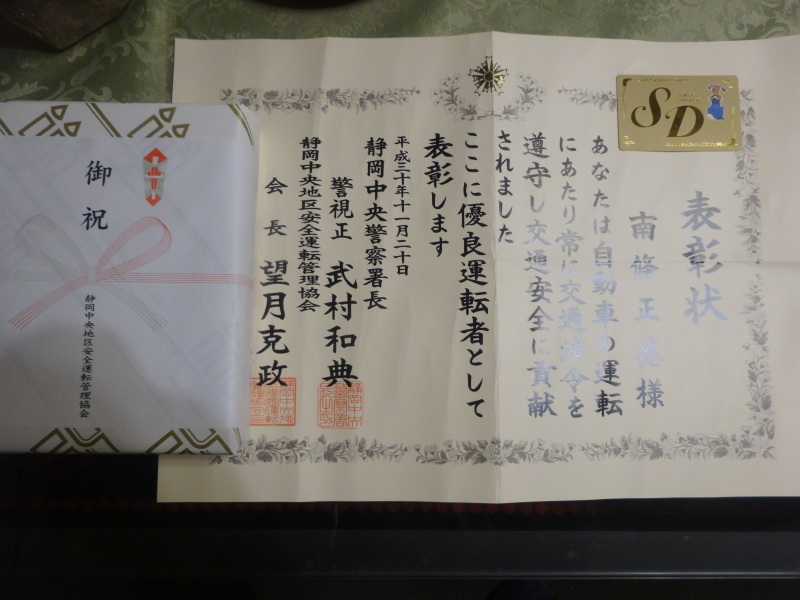 表彰状
南條正徳様
あなたは自動車の運転
にあたり常に交通法令を
遵守し交通安全に貢献
されました
ここに優良運転者として
表彰します
平成三十年十一月二十日
静岡中央警察署長
警視正 武村和典
静岡中央地区安全運転管理協会
会長 望月克政
SD
御祝
静岡中央地区安全運転管理協会